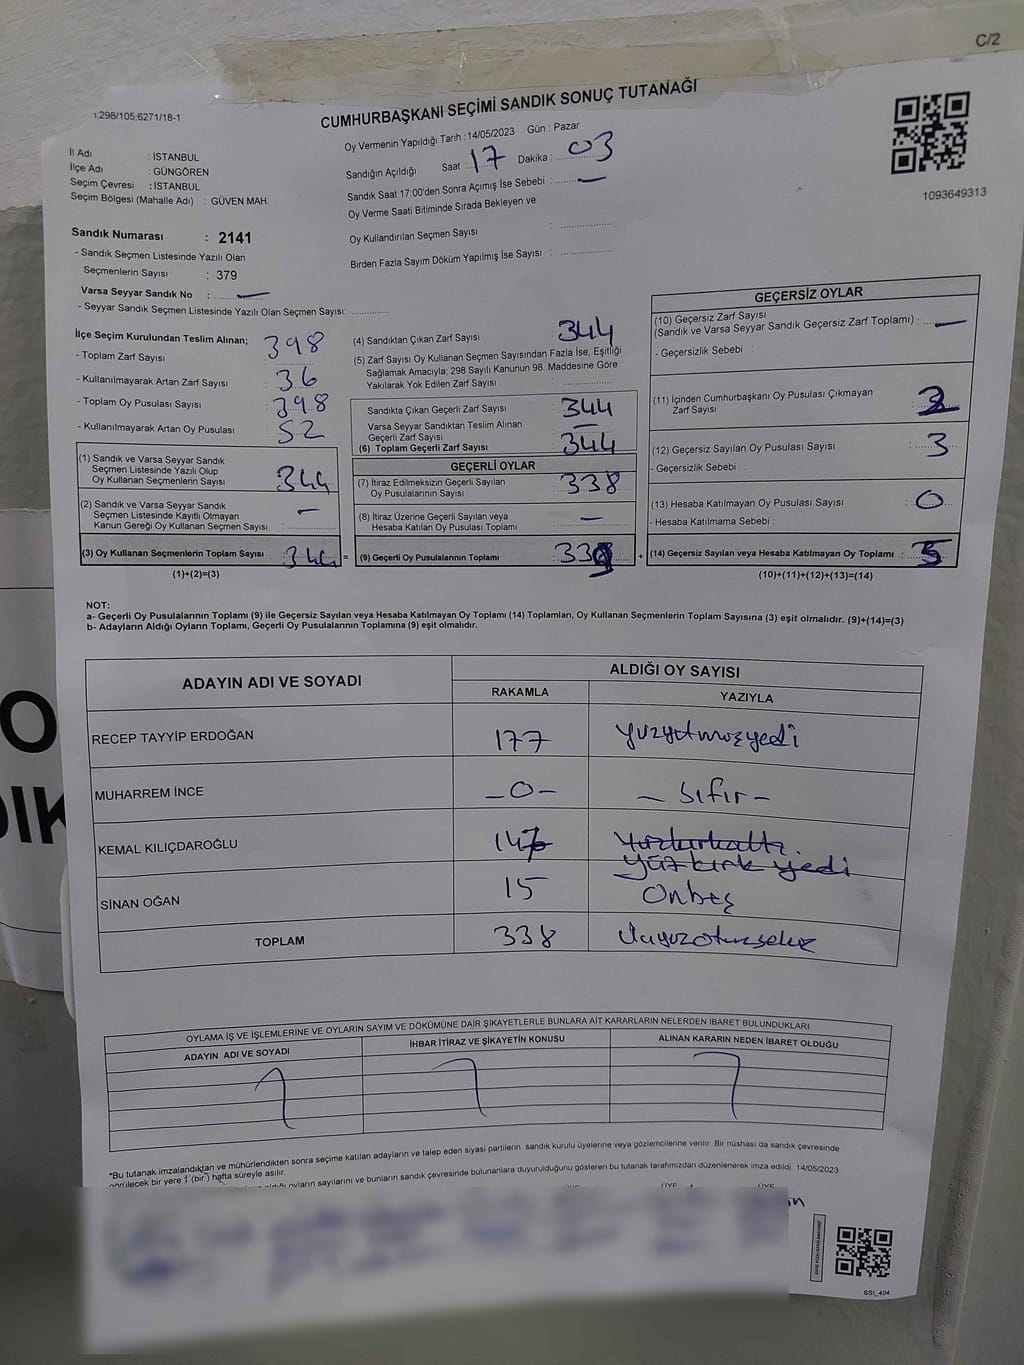 C/2
298/105;6271/18-1
CUMHURBAŞKANI SEÇİMİ SANDIK SONUÇ TUTANAĞI
Oy Vermenin Yapıldığı Tarih : 14/05/2023 Gün : Pazar
Sandığın Açıldığı Saat : 17 Dakika : 03
Sandık Saat 17:00'den Sonra Açımış İse Sebebi : —
Oy Verme Saati Bitiminde Sırada Bekleyen ve
Oy Kullandırılan Seçmen Sayısı :
Birden Fazla Sayım Döküm Yapılmış İse Sayısı :
1093649313
İl Adı : İSTANBUL
İlçe Adı : GÜNGÖREN
Seçim Çevresi : İSTANBUL
Seçim Bölgesi (Mahalle Adı) : GÜVEN MAH.
Sandık Numarası : 2141
- Sandık Seçmen Listesinde Yazılı Olan
Seçmenlerin Sayısı : 379
Varsa Seyyar Sandık No : —
- Seyyar Sandık Seçmen Listesinde Yazılı Olan Seçmen Sayısı:
İlçe Seçim Kurulundan Teslim Alınan;
- Toplam Zarf Sayısı : 398
- Kullanılmayarak Artan Zarf Sayısı : 36
- Toplam Oy Pusulası Sayısı : 398
- Kullanılmayarak Artan Oy Pusulası : 52
(1) Sandık ve Varsa Seyyar Sandık
Seçmen Listesinde Yazılı Olup
Oy Kullanan Seçmenlerin Sayısı : 344
(2) Sandık ve Varsa Seyyar Sandık
Seçmen Listesinde Kayıtlı Olmayan
Kanun Gereği Oy Kullanan Seçmen Sayısı : —
(3) Oy Kullanan Seçmenlerin Toplam Sayısı : 344 =
(1)+(2)=(3)
(4) Sandıktan Çıkan Zarf Sayısı : 344
(5) Zarf Sayısı Oy Kullanan Seçmen Sayısından Fazla İse, Eşitliği
Sağlamak Amacıyla, 298 Sayılı Kanunun 98. Maddesine Göre
Yakılarak Yok Edilen Zarf Sayısı :
Sandıkta Çıkan Geçerli Zarf Sayısı : 344
Varsa Seyyar Sandıktan Teslim Alınan
Geçerli Zarf Sayısı : —
(6) Toplam Geçerli Zarf Sayısı : 344
GEÇERLİ OYLAR
(7) İtiraz Edilmeksizin Geçerli Sayılan
Oy Pusulalarının Sayısı : 338
(8) İtiraz Üzerine Geçerli Sayılan veya
Hesaba Katılan Oy Pusulası Toplamı : —
(9) Geçerli Oy Pusulalarının Toplamı : +
GEÇERSİZ OYLAR
(10) Geçersiz Zarf Sayısı
(Sandık ve Varsa Seyyar Sandık Geçersiz Zarf Toplamı) : —
- Geçersizlik Sebebi :
(11) İçinden Cumhurbaşkanı Oy Pusulası Çıkmayan
Zarf Sayısı :
(12) Geçersiz Sayılan Oy Pusulası Sayısı : 3
- Geçersizlik Sebebi :
(13) Hesaba Katılmayan Oy Pusulası Sayısı : 0
- Hesaba Katılmama Sebebi :
(14) Geçersiz Sayılan veya Hesaba Katılmayan Oy Toplamı :
(10)+(11)+(12)+(13)=(14)
NOT:
a- Geçerli Oy Pusulalarının Toplamı (9) ile Geçersiz Sayılan veya Hesaba Katılmayan Oy Toplamı (14) Toplamları, Oy Kullanan Seçmenlerin Toplam Sayısına (3) eşit olmalıdır. (9)+(14)=(3)
b- Adayların Aldığı Oyların Toplamı, Geçerli Oy Pusulalarının Toplamına (9) eşit olmalıdır.
ADAYIN ADI VE SOYADI ALDIĞI OY SAYISI
RAKAMLA YAZIYLA
RECEP TAYYİP ERDOĞAN 177 yüzyetmişyedi
MUHARREM İNCE -0- - sıfır -
KEMAL KILIÇDAROĞLU yüzkırkaltı
yüzkırk yedi
SİNAN OĞAN 15 Onbeş
TOPLAM 338 üçyüzotuzsekiz
OYLAMA İŞ VE İŞLEMLERİNE VE OYLARIN SAYIM VE DÖKÜMÜNE DAİR ŞİKAYETLERLE BUNLARA AİT KARARLARIN NELERDEN İBARET BULUNDUKLARI
ADAYIN ADI VE SOYADI İHBAR İTİRAZ VE ŞİKAYETİN KONUSU ALINAN KARARIN NEDEN İBARET OLDUĞU
*Bu tutanak imzalandıktan ve mühürlendikten sonra seçime katılan adayların ve talep eden siyasi partilerin sandık kurulu üyelerine veya gözlemcilerine verilir. Bir nüshası da sandık çevresinde
görülecek bir yere 1 (bir) hafta süreyle asılır.
oyların sayılarını ve bunların sandık çevresinde bulunanlara duyurulduğunu gösteren bu tutanak tarafımızdan düzenlenerek imza edildi. 14/05/2023
ÜYE ÜYE ÜYE
SSI_404